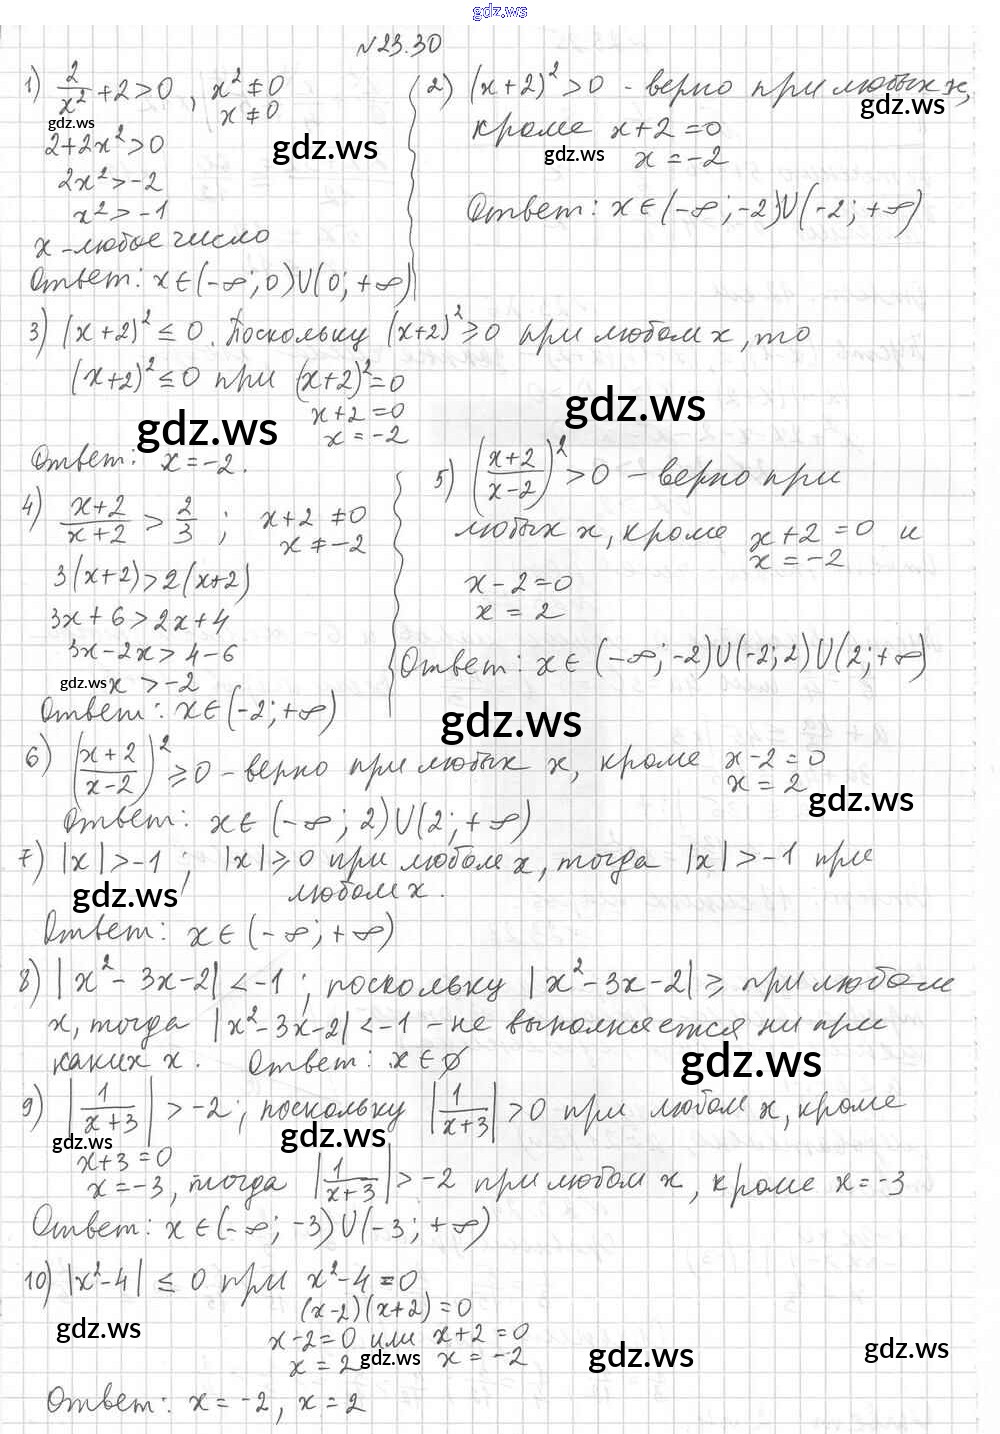 gdz.ws
№23.30
1) 2/x² + 2 > 0 , x² ≠ 0
x ≠ 0
gdz.ws
2+2x² > 0
gdz.ws
2x² > -2
x² > -1
x - любое число
Ответ: x ∈ (-∞; 0) ∪ (0; +∞)
2) (x+2)² > 0 - верно при любых x,
gdz.ws
кроме x+2 = 0
gdz.ws
x = -2
Ответ: x ∈ (-∞; -2) ∪ (-2; +∞)
3) (x+2)² ≤ 0. Поскольку (x+2)² ≥ 0 при любом x, то
(x+2)² ≤ 0 при (x+2)² = 0
x+2 = 0
gdz.ws
gdz.ws
x = -2
Ответ: x = -2.
4) x+2/x+2 > 2/3 ; x+2 ≠ 0
x ≠ -2
3(x+2) > 2(x+2)
3x+6 > 2x+4
3x-2x > 4-6
gdz.ws x > -2
Ответ: x ∈ (-2; +∞)
5) (x+2/x-2)² > 0 - верно при
любых x, кроме x+2 = 0 и
x = -2
x-2 = 0
x = 2
Ответ: x ∈ (-∞; -2) ∪ (-2; 2) ∪ (2; +∞)
gdz.ws
6) (x+2/x-2)² ≥ 0 - верно при любых x, кроме x-2 = 0
x = 2
gdz.ws
Ответ: x ∈ (-∞; 2) ∪ (2; +∞)
7) |x| > -1 ; |x| ≥ 0 при любом x, тогда |x| > -1 при
gdz.ws
любом x.
Ответ: x ∈ (-∞; +∞)
8) |x² - 3x - 2| < -1 ; поскольку |x² - 3x - 2| ≥ при любом
x, тогда |x² - 3x - 2| < -1 - не выполняется ни при
каких x. Ответ: x ∈ ∅
gdz.ws
9) |1/x+3| > -2 ; поскольку |1/x+3| > 0 при любом x, кроме
gdz.ws
gdz.ws
x+3 = 0
x = -3, тогда |1/x+3| > -2 при любом x, кроме x = -3
Ответ: x ∈ (-∞; -3) ∪ (-3; +∞)
10) |x²-4| ≤ 0 при x²-4 = 0
(x-2)(x+2) = 0
gdz.ws
x-2 = 0 или x+2 = 0
x = 2 gdz.ws x = -2
gdz.ws
gdz.ws
Ответ: x = -2, x = 2